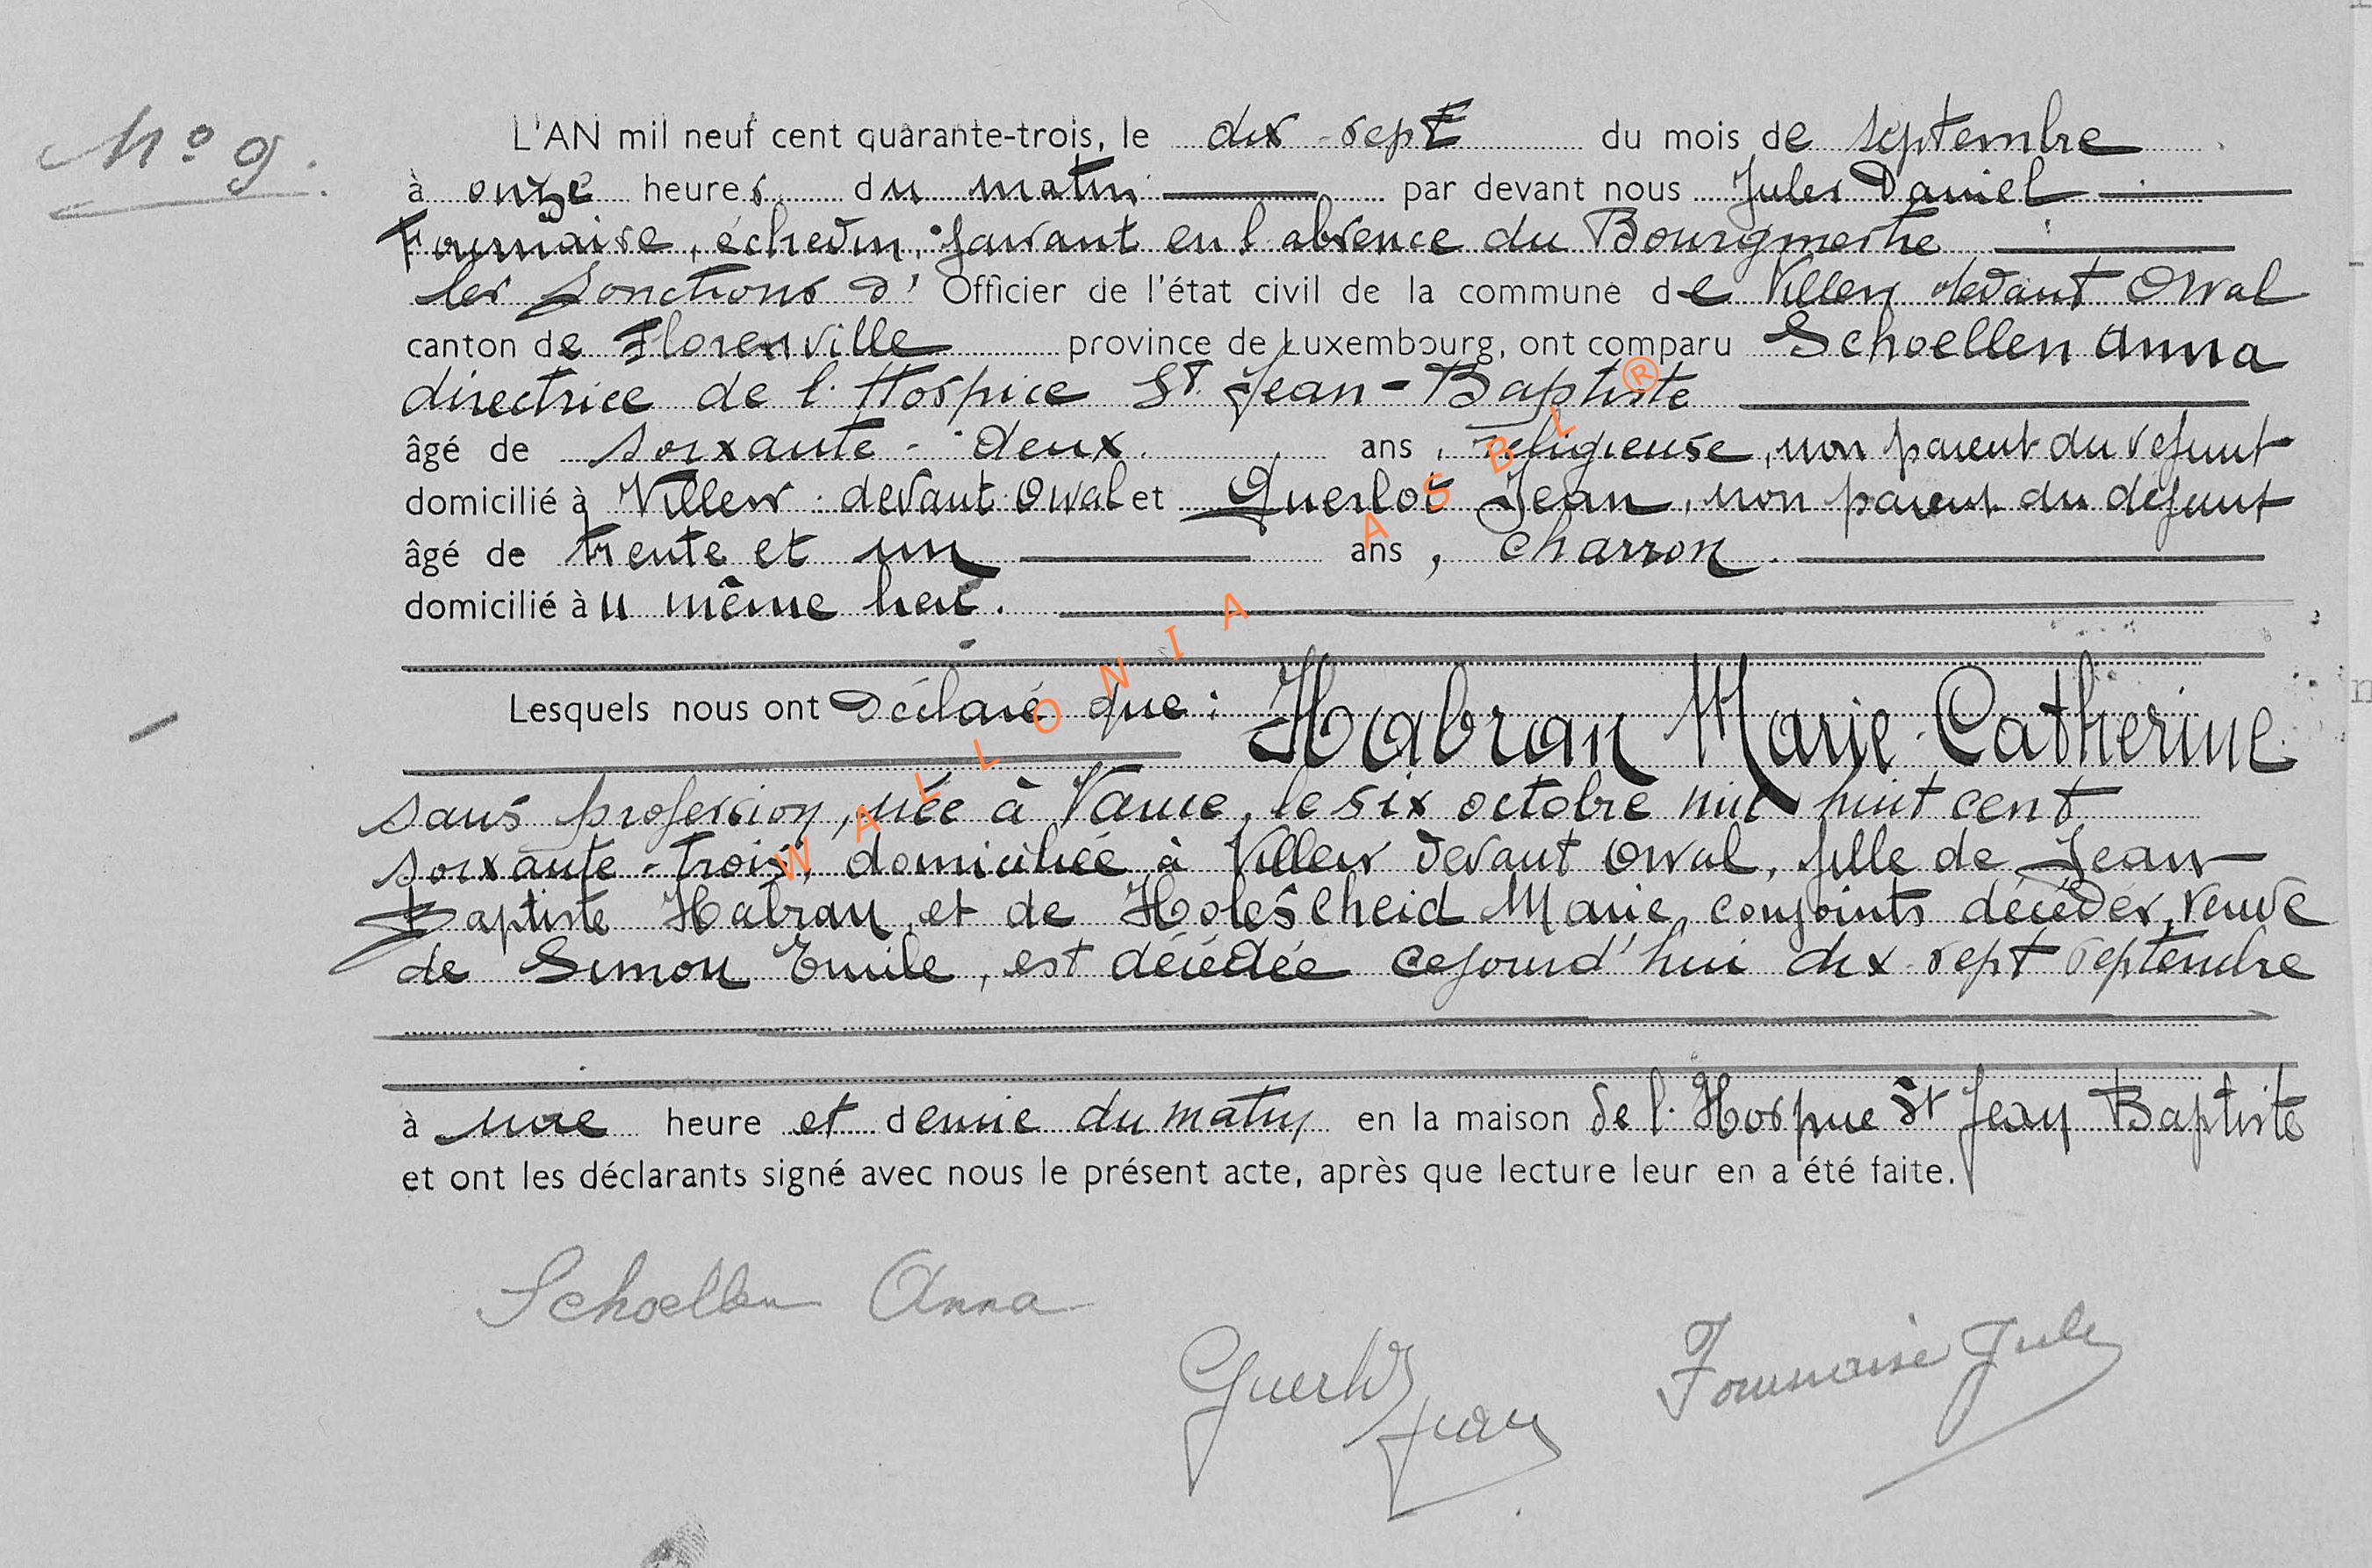 N° 9.
L'AN mil neuf cent quarante-trois, le dix-sept du mois de septembre
à onze heures du matin par devant nous Jules Daniel
Fournaise, échevin, faisant en l'absence du Bourgmestre
les fonctions d'Officier de l'état civil de la commune de Villers devant Orval
canton de Florenville province de Luxembourg, ont comparu Schoellen Anna
directrice de l'Hospice St Jean-Baptiste
âgé de soixante-deux ans, religieuse, non parent du défunt
domicilié à Villers-devant-Orval et Querlot Jean, non parent du défunt
âgé de trente et un ans, charron
domicilié au même lieu.
Lesquels nous ont Déclaré que : Habran Marie-Catherine
sans profession, née à Vance, le six octobre mil huit cent
soixante-trois, domiciliée à Villers devant Orval, fille de Jean
Baptiste Habran et de Holescheid Marie, conjoints décédés, veuve
de Simon Emile, est décédée cejourd'hui dix-sept septembre
à une heure et demie du matin en la maison de l'Hospice St Jean Baptiste
et ont les déclarants signé avec nous le présent acte, après que lecture leur en a été faite.
Schoellen Anna
Jean
Fournaise Jules
WALLONIA ASBL ®